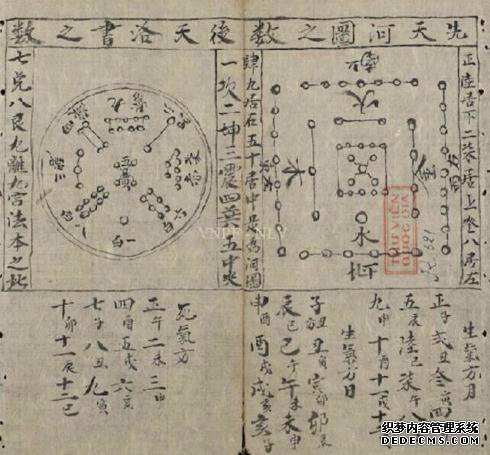 先天河圖之數
後天洛書之數
正陸居下二柒居上叁八居左
肆九居右五十居中是為河圖
南
火
金
木
水
北
一坎二坤三震四巽五中央
七兌八艮九離九宮法本之此
九
一白
生氣方月
正子弍丑叁寅四
五辰陸巳柒午八
九申十酉十一戌十
生氣方日
子丑丑寅寅卯卯辰
辰巳巳午午未未申
申酉酉戌戌亥亥子
死氣方
正午二未三申
四酉五戌六亥
七子八丑九寅
十卯十一辰十二巳
THƯ VIỆN
QUỐC GIA
织梦内容管理系统
DEDECMS.COM